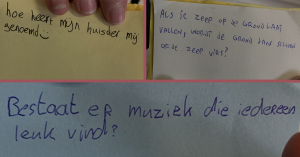 hoe heeft mijn huisdier mij
genoemd
ALS IK ZEEP OP DE GROND LAAT
VALLEN, WORDT DE GROND DAN SCHOON
OF DE ZEEP VIES?
Bestaat er muziek die iedereen
leuk vind?